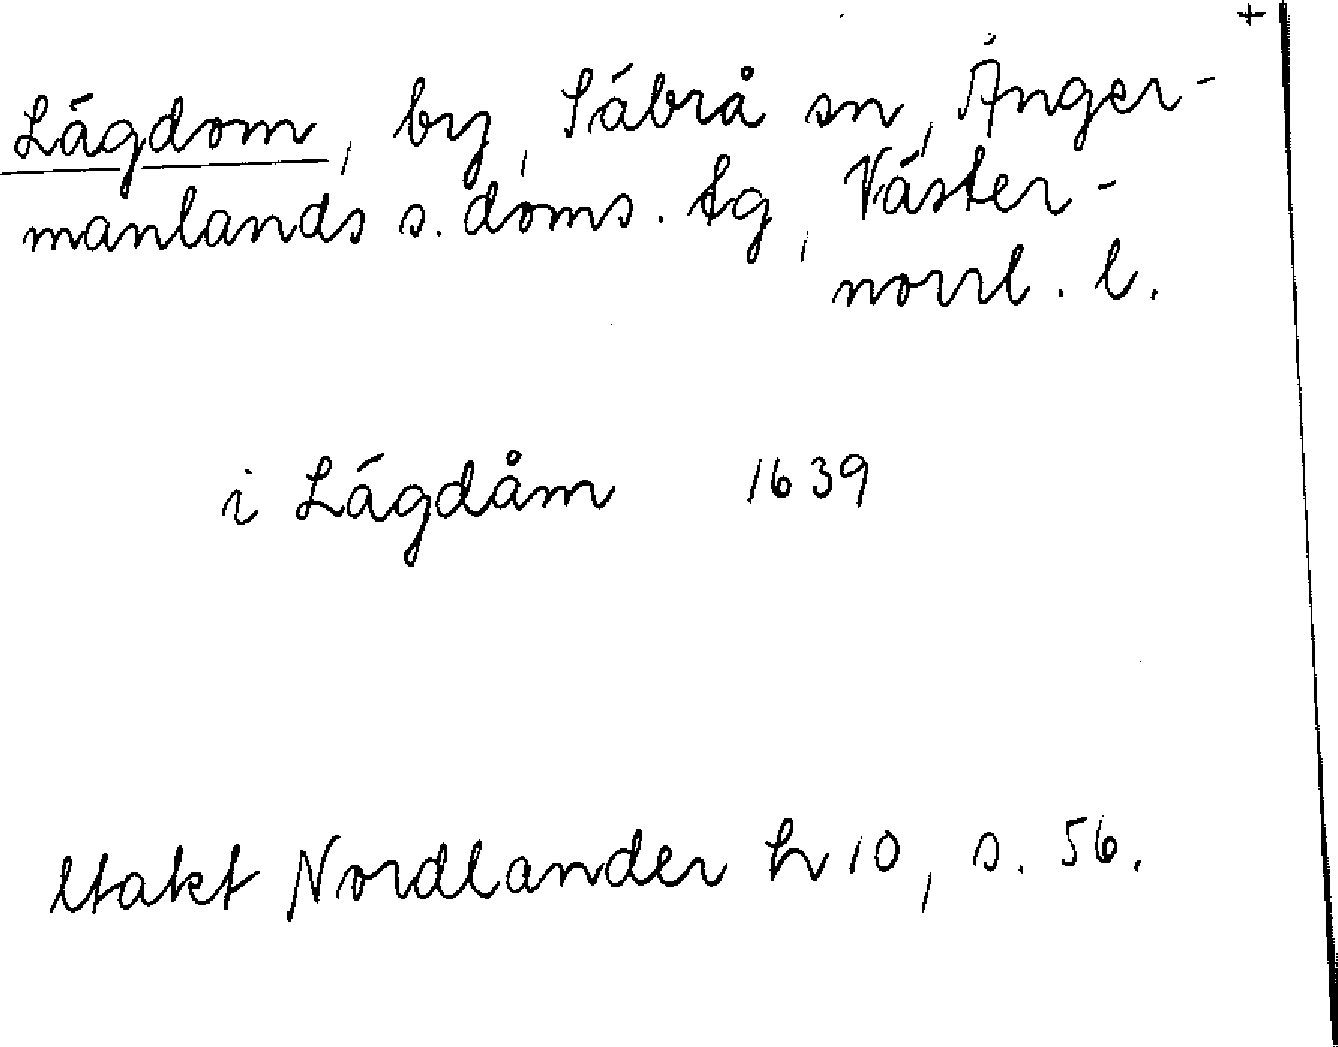 +
Lägdom, by, Säbrå sn, Ånger-
manlands s. doms. tg, Väster-
norrl. l.
i Lägdåm 1639
Utakt Nordlander h 10, s. 56.